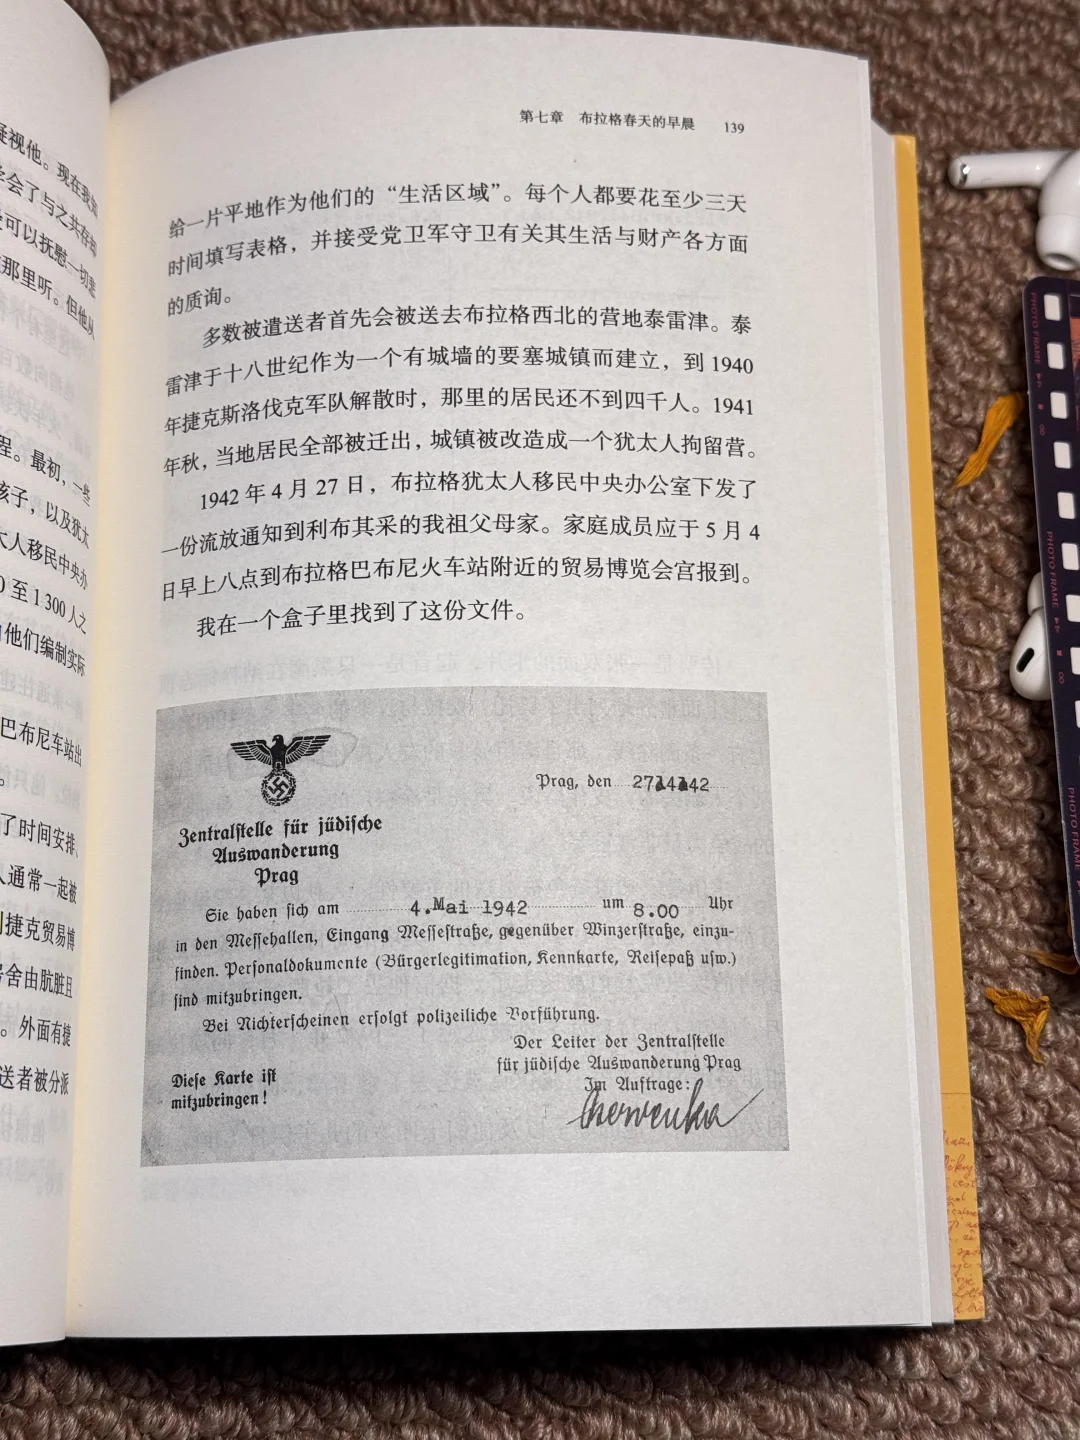 疑视他。现在我知
学会了与之共存却
可以抚慰一切悲
那里听。但他从
程。最初，一些
孩子，以及犹太
太人移民中央办
0 至 1 300 人之
他们编制实际
巴布尼车站出
了时间安排、
人通常一起被
捷克贸易博
舍由肮脏且
。外面有捷
送者被分派
第七章 布拉格春天的早晨 139
给一片平地作为他们的“生活区域”。每个人都要花至少三天
时间填写表格，并接受党卫军守卫有关其生活与财产各方面
的质询。
多数被遣送者首先会被送去布拉格西北的营地泰雷津。泰
雷津于十八世纪作为一个有城墙的要塞城镇而建立，到 1940
年捷克斯洛伐克军队解散时，那里的居民还不到四千人。1941
年秋，当地居民全部被迁出，城镇被改造成一个犹太人拘留营。
1942 年 4 月 27 日，布拉格犹太人移民中央办公室下发了
一份流放通知到利布其采的我祖父母家。家庭成员应于 5 月 4
日早上八点到布拉格巴布尼火车站附近的贸易博览会宫报到。
我在一个盒子里找到了这份文件。
Prag, den 27.4.42
Zentralstelle für jüdische
Auswanderung
Prag
Sie haben sich am 4.Mai 1942 um 8.00 Uhr
in den Messehallen, Eingang Messestraße, gegenüber Winzerstraße, einzu-
finden. Personaldokumente (Bürgerlegitimation, Kennkarte, Reisepaß usw.)
sind mitzubringen.
Bei Nichterscheinen erfolgt polizeiliche Vorführung.
Der Leiter der Zentralstelle
für jüdische Auswanderung Prag
Im Auftrage:
Diese Karte ist
mitzubringen!
PHOTO FRAME
PHOTO FRAME
PHOTO FRAME